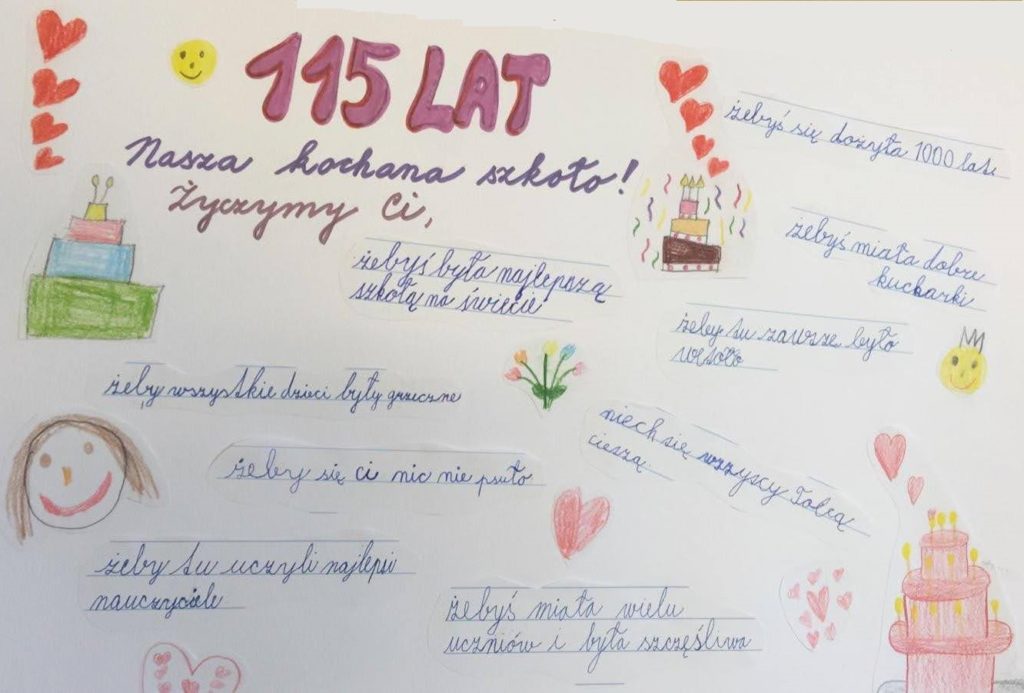 115 LAT
Nasza kochana szkoło!
Życzymy Ci,
żebyś się dożyła 1000 lat.
żebyś miała dobre
kucharki
żebyś była najlepszą
szkołą na świecie
żeby tu zawsze było
wesoło
żeby wszystkie dzieci były grzeczne
niech się wszyscy Tobą
cieszą.
żeby się ci nic nie psuło
żeby tu uczyli najlepsi
nauczyciele
żebyś miała wielu
uczniów i była szczęśliwa